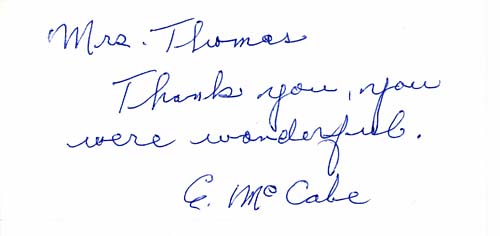 Mrs. Thomas
Thank you, you
were wonderful.
E. McCabe